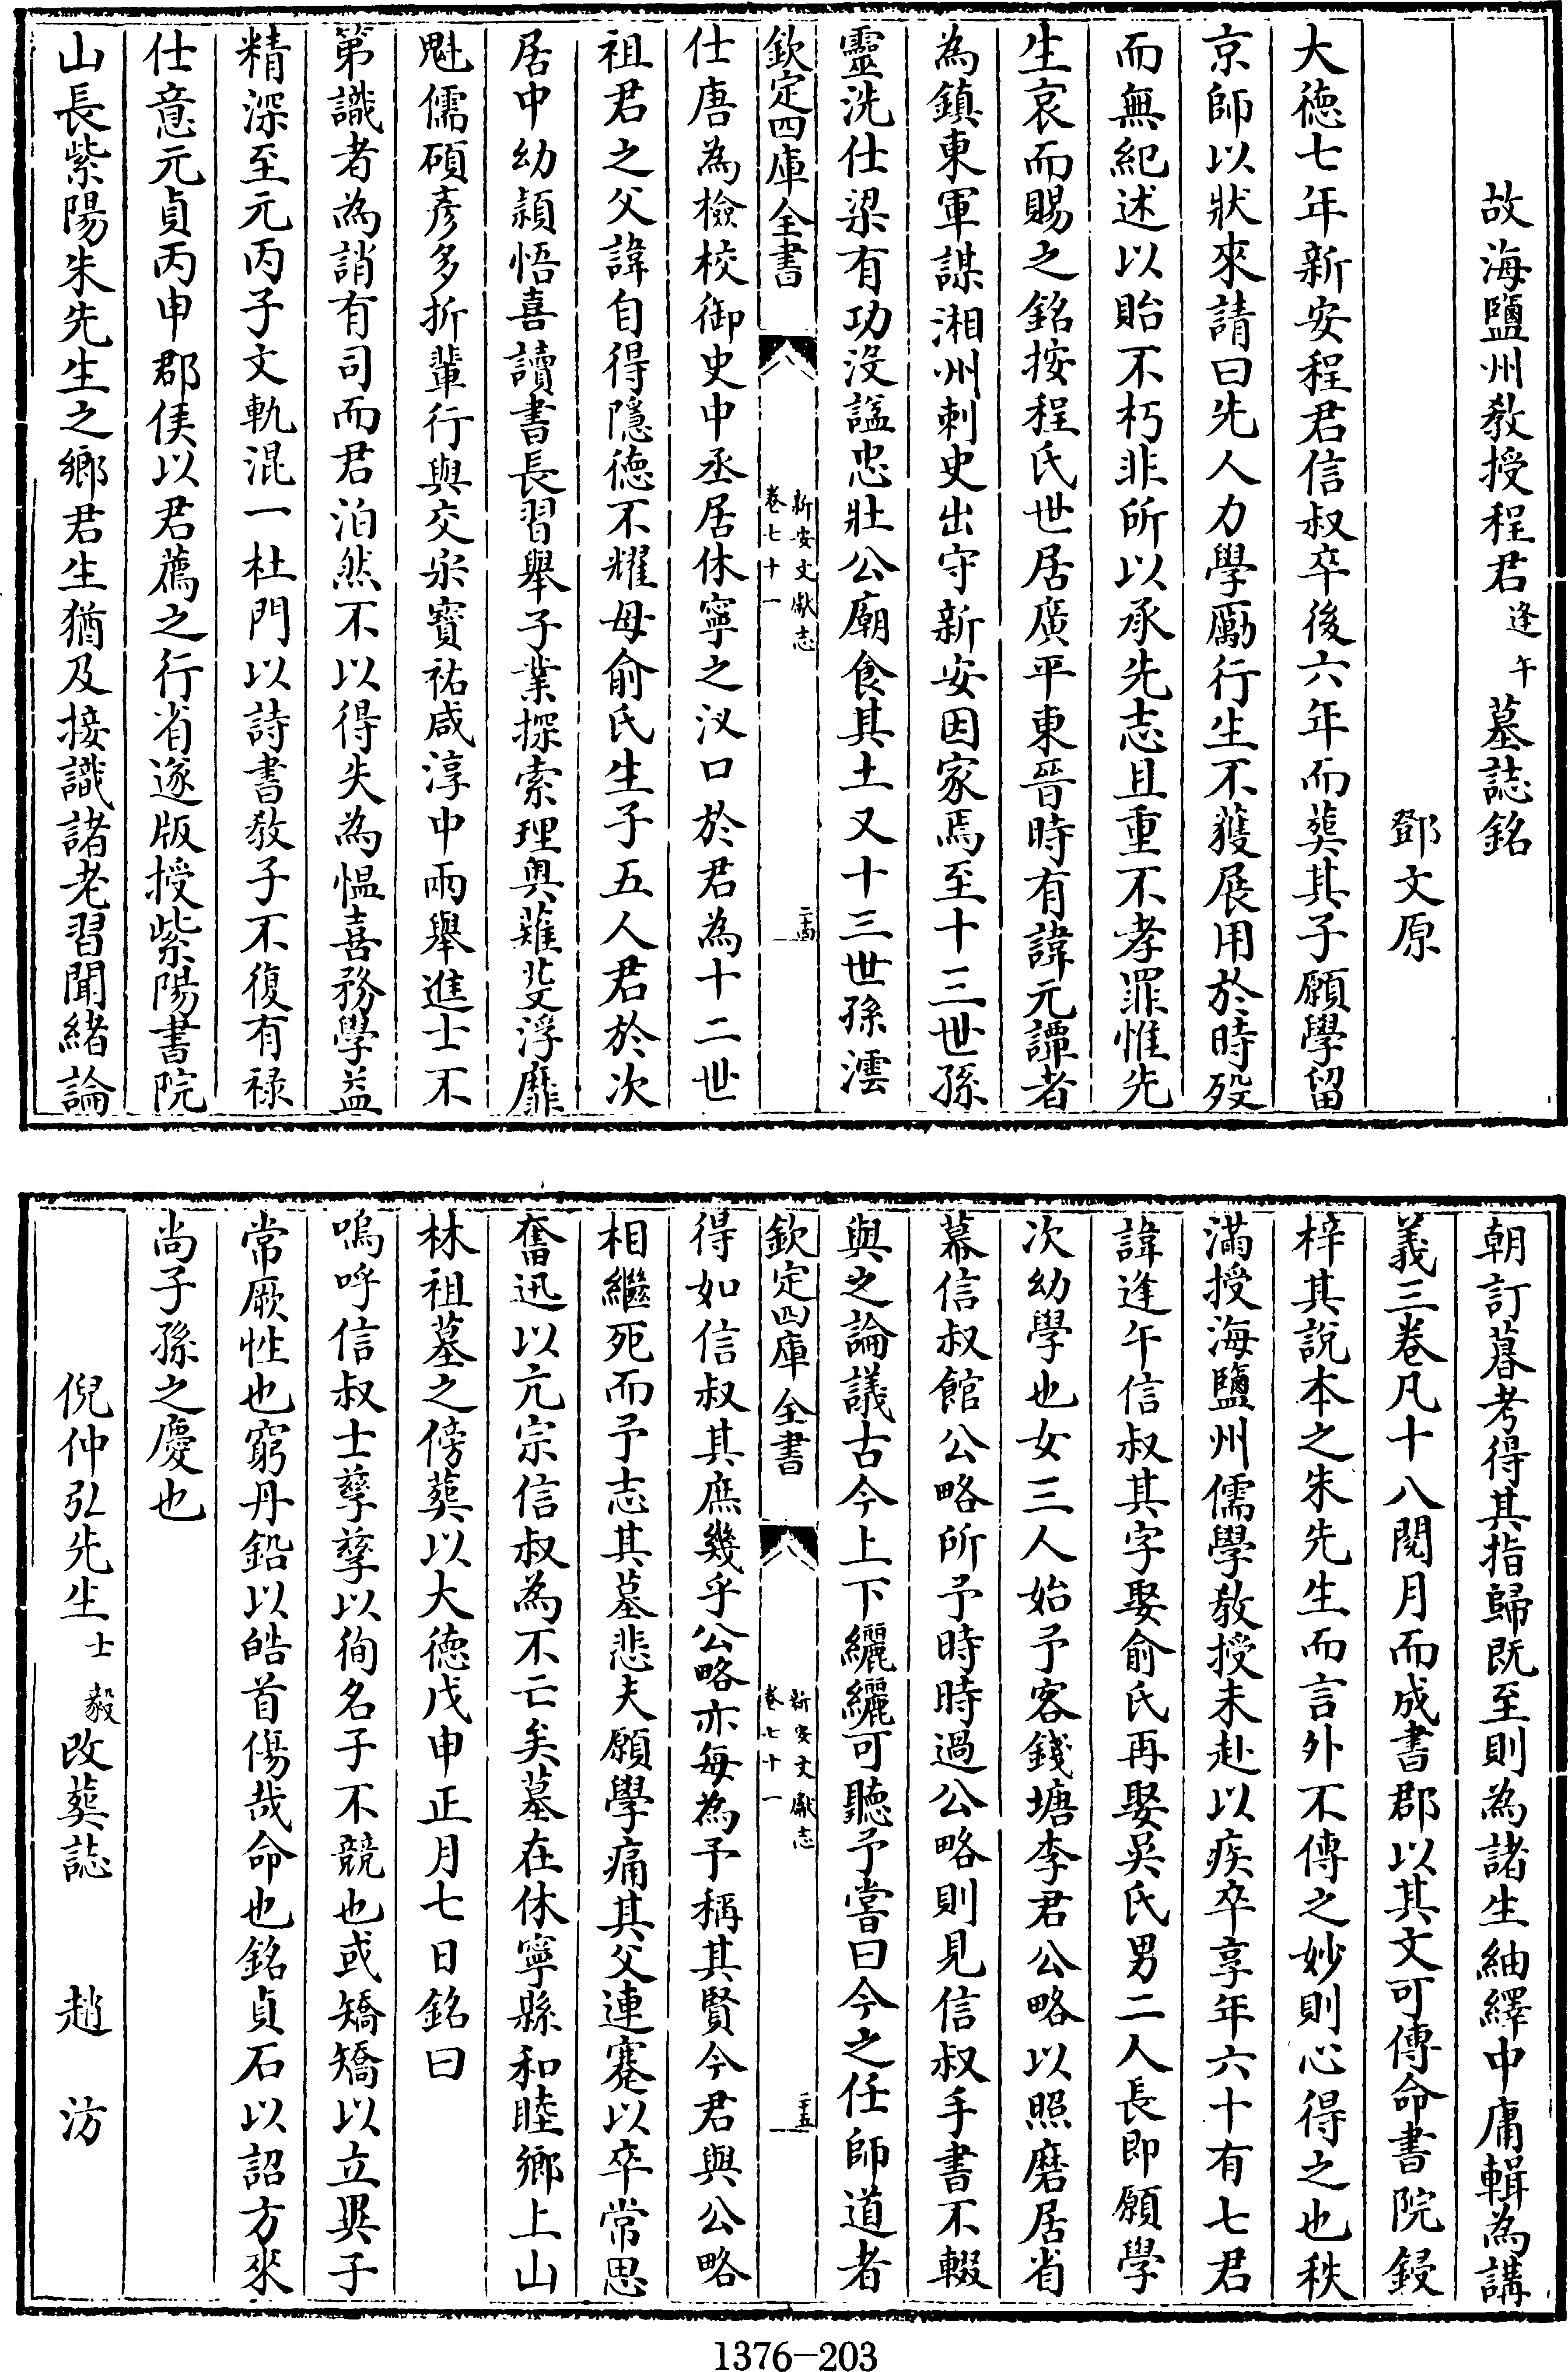 故海鹽州教授程君逢午墓誌銘
鄧文原
大德七年新安程君信叔卒後六年而葬其子願學留
京師以狀來請曰先人力學勵行生不獲展用於時歿
而無紀述以貽不朽非所以承先志且重不孝罪惟先
生哀而賜之銘按程氏世居廣平東晉時有諱元譚者
為鎮東軍謀湘州刺史出守新安因家焉至十三世孫
靈洗仕梁有功沒諡忠壯公廟食其土又十三世孫澐
欽定四庫全書
新安文獻志
卷七十一
二十四
仕唐為檢校御史中丞居休寧之汊口於君為十二世
祖君之父諱自得隱德不耀母俞氏生子五人君於次
居中幼穎悟喜讀書長習舉子業探索理奧薙芟浮靡
魁儒碩彥多折輩行與交宋寳祐咸淳中兩舉進士不
第識者為誚有司而君泊然不以得失為愠喜務學益
精深至元丙子文軌混一杜門以詩書教子不復有禄
仕意元貞丙申郡侯以君薦之行省遂版授紫陽書院
山長紫陽朱先生之鄉君生猶及接識諸老習聞緒論
朝訂暮考得其指歸既至則為諸生紬繹中庸輯為講
義三卷凡十八閱月而成書郡以其文可傳命書院鋟
梓其說本之朱先生而言外不傳之妙則心得之也秩
滿授海鹽州儒學教授未赴以疾卒享年六十有七君
諱逢午信叔其字娶俞氏再娶吳氏男二人長即願學
次幼學也女三人始予客錢塘李君公略以照磨居省
幕信叔館公略所予時時過公略則見信叔手書不輟
與之論議古今上下纚纚可聽予嘗曰今之任師道者
欽定四庫全書
新安文獻志
卷七十一
二十五
得如信叔其庶幾乎公略亦每為予稱其賢今君與公略
相繼死而予志其墓悲夫願學痛其父連蹇以卒常思
奮迅以亢宗信叔為不亡矣墓在休寧縣和睦鄉上山
林祖墓之傍葬以大德戊申正月七日銘曰
嗚呼信叔士孳孳以徇名子不競也或矯矯以立異子
常厥性也窮丹鉛以皓首傷哉命也銘貞石以詔方來
尚子孫之慶也
倪仲弘先生士毅改葬誌 趙汸
1376-203